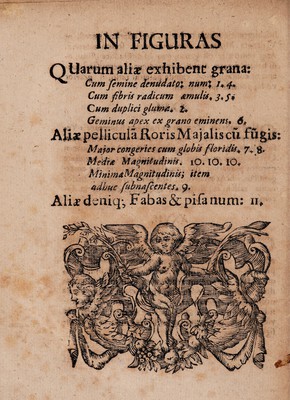 IN FIGURAS
QUarum aliæ exhibent grana:
Cum semine denudato; num: 1. 4.
Cum fibris radicum æmulis. 3. 5.
Cum duplici gluma. 2.
Geminus apex ex grano eminens. 6.
Aliæ pelliculā Roris Majalis cū fūgis:
Major congeries cum globis floridis. 7. 8.
Mediæ Magnitudinis. 10. 10. 10.
Minimæ Magnitudinis; item
adhuc subnascentes. 9.
Aliæ deniq;, Fabas & pisa num: 11.